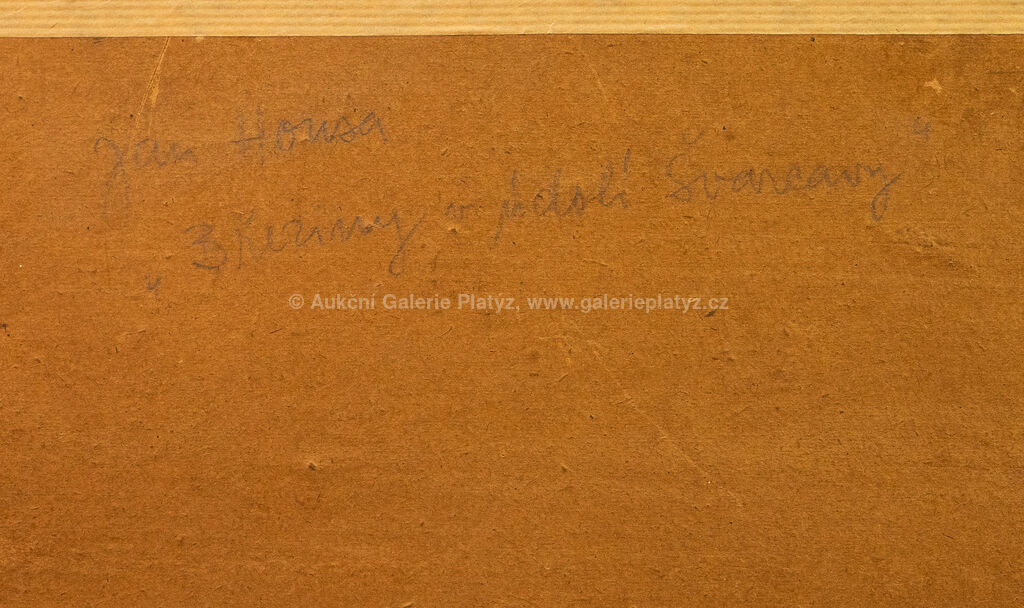 Jan Housa
„Březiny v údolí Švarcavy"
© Aukční Galerie Platýz, www.galerieplatyz.cz